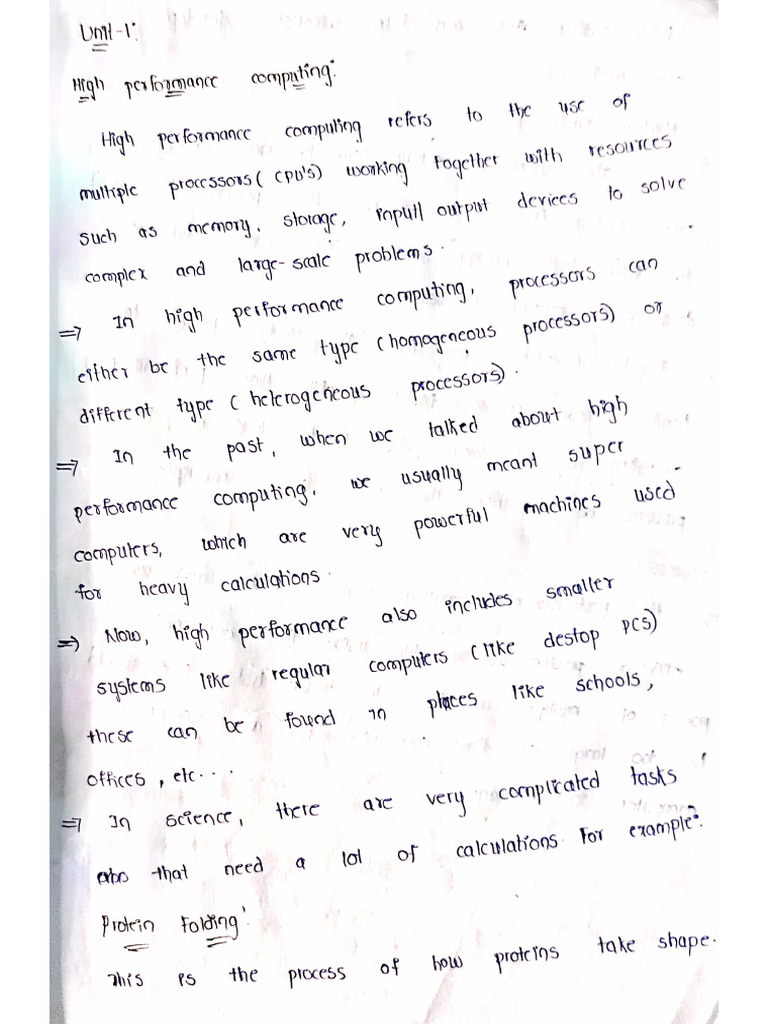 Unit-1:
High performance computing:
High performance computing refers to the use of
multiple processors (CPU's) working together with resources
such as memory, storage, input/output devices to solve
complex and large-scale problems.
⇒ In high performance computing, processors can
either be the same type (homogeneous processors) or
different type (heterogeneous processors).
⇒ In the past, when we talked about high
performance computing, we usually meant super
computers, which are very powerful machines used
for heavy calculations.
⇒ Now, high performance also includes smaller
systems like regular computers (like destop PCs)
these can be found in places like schools,
offices, etc...
⇒ In science, there are very complicated tasks
that need a lot of calculations. For example:
Protein Folding:
This is the process of how proteins take shape.